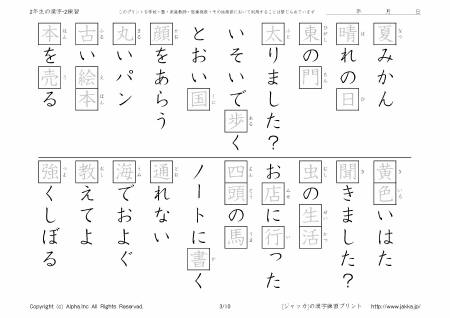 2年生の漢字-2練習
このプリントを学校・塾・家庭教師・医療施設・その他施設において利用することは禁じられています
年 月 日
夏みかん
晴れの日
東の門
太りました?
いそいで歩く
とおい国
顔をあらう
丸いパン
古い絵本
本を売る
黄色いはた
聞きました?
虫の生活
お店に行った
四頭の馬
ノートに書く
通れない
海でおよぐ
教えてよ
強くしぼる
Copyright (c) Alpha.Inc All Rights Reserved.
3/10
[ジャッカ]の漢字練習プリント
http://www.jakka.jp/